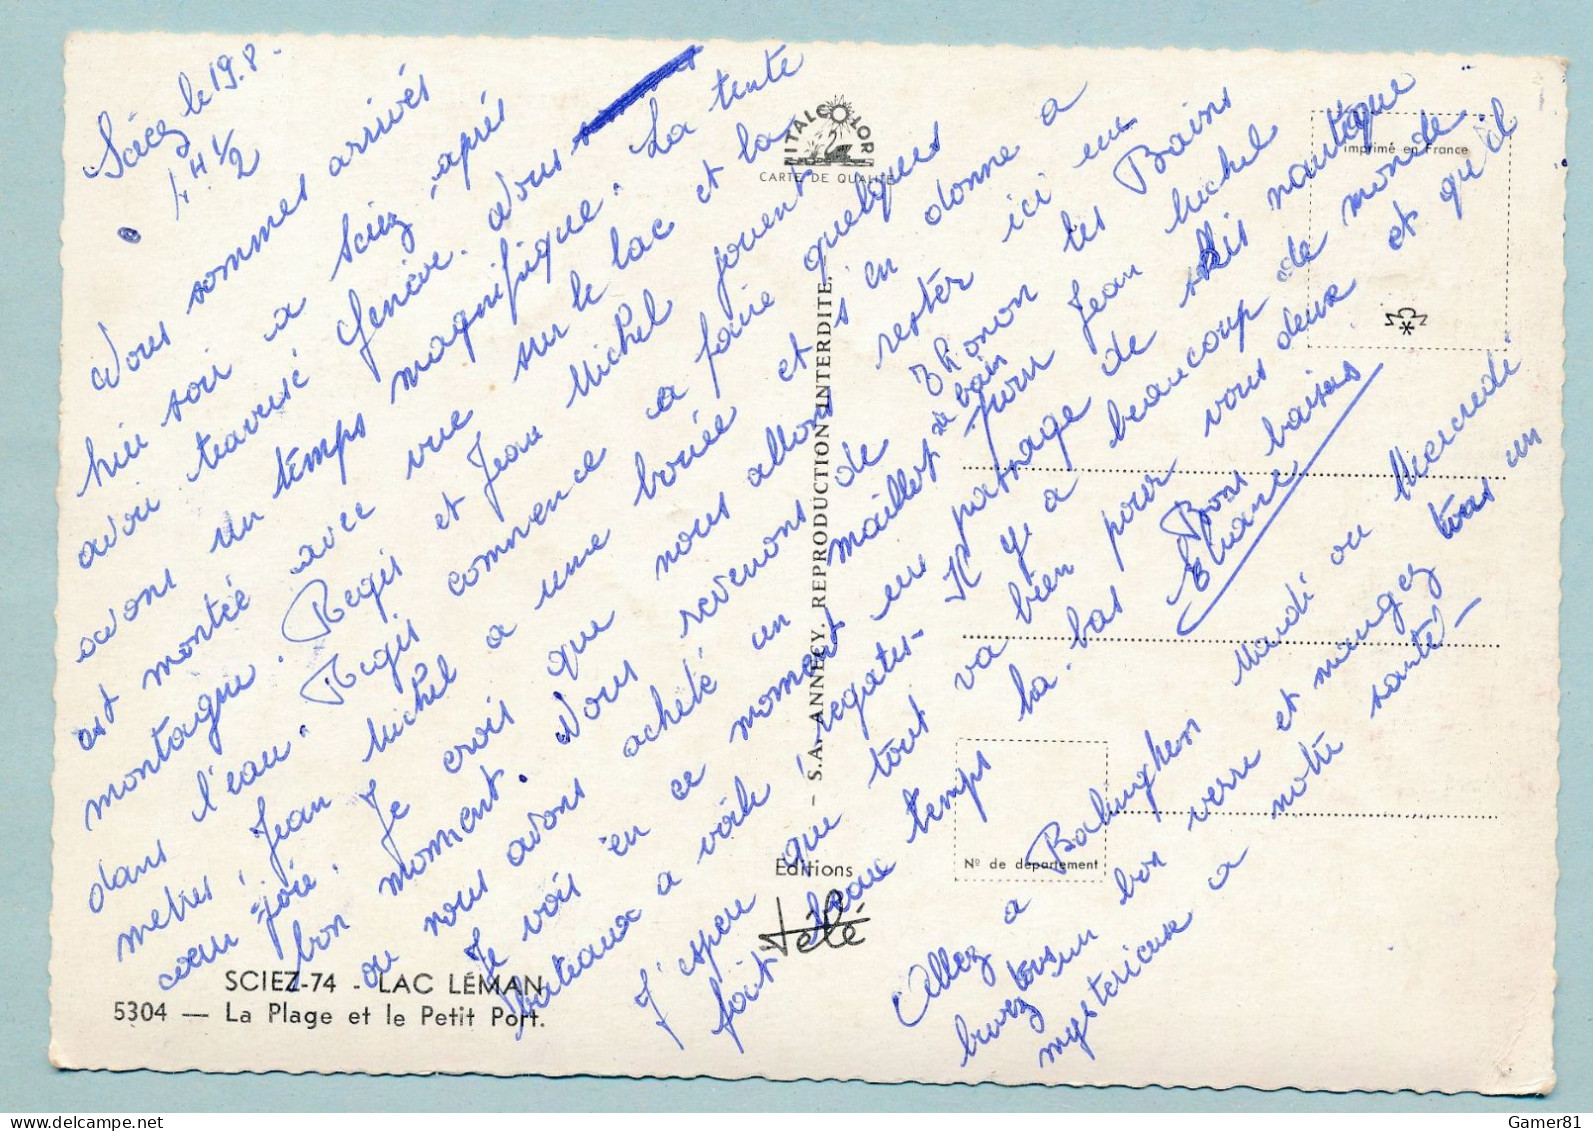 Sciez le 19.8.
1 H 1/2
Nous sommes arrivés
hier soir a Sciez après
avoir traversé Genève. Nous
avons un temps magnifique. La tente
est montée avec vue sur le lac et la
montagne. Regis et Jean Michel jouent
dans l'eau. Regis commence a faire quelques
metres, Jean Michel a une bouée et s'en donne a
cœur joie. Je crois que nous allons rester ici un
bon moment. Nous revenons de Thonon les Bains
ou nous avons acheté un maillot de bain pour Jean Michel
Je vois en ce moment un patinage de skis nautique
bateaux a voile, regates- Il y a beaucoup de monde
J'espere que tout va bien pour vous deux et qu'il
fait beau temps la-bas Bons baisers
Eliane
Allez a Balinghem Mardi ou Mercredi
buvez tous un bon verre et mangez tous un
mysterieuse a notre santé-
ITALCOLOR
CARTE DE QUALITÉ
imprimé en France
S.A. ANNECY. REPRODUCTION INTERDITE.
Editions
télé
Nº de département
SCIEZ-74 - LAC LÉMAN
5304 — La Plage et le Petit Port.
Gamer81